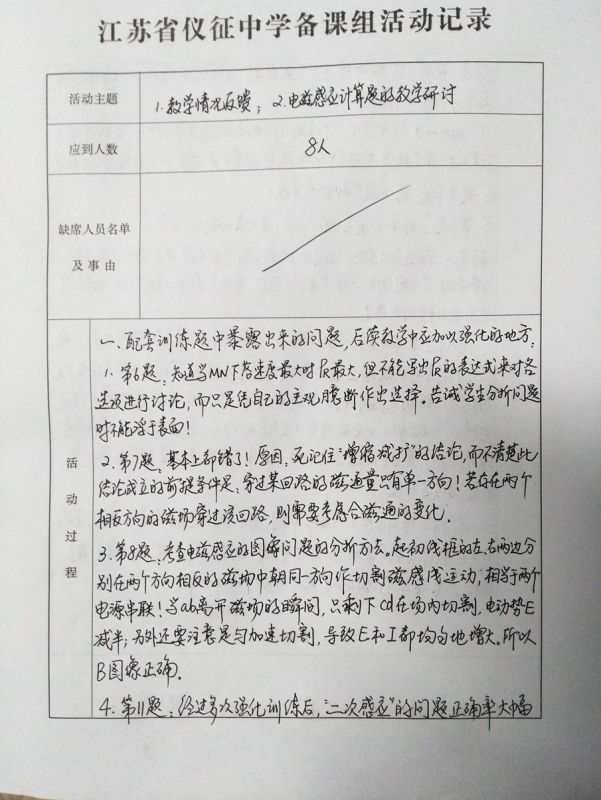 江苏省仪征中学备课组活动记录
活动主题
1.教学情况反馈；2.电磁感应计算题的教学研讨
应到人数
8人
缺席人员名单
及事由
活动过程
一、配套训练题中暴露出来的问题，后续教学中应加以强化的地方：
1.第6题：知道当MN下落速度最大时最大，但不能写出的表达式来对各
选项进行讨论，而只是凭自己的主观臆断作出选择。告诫学生分析问题
时不能浮于表面！
2.第7题：基本上都错了！原因：死记住“增缩减扩”的结论，而不清楚此
结论成立的前提条件是：穿过某回路的磁通量只有单一方向！若存在两个
相反方向的磁场穿过该回路，则需要考虑合磁通的变化.
3.第8题：考查电磁感应的图像问题的分析方法。起初线框的左、右两边分
别在两个方向相反的磁场中朝同一方向作切割磁感线运动，相当于两个
电源串联！当ab离开磁场的瞬间，只剩下cd在场内切割，电动势E
减半；另外还要注意是匀加速切割，导致E和I都均匀地增大。所以
B图像正确.
4.第11题：经过多次强化训练后，“二次感应”的问题正确率大幅